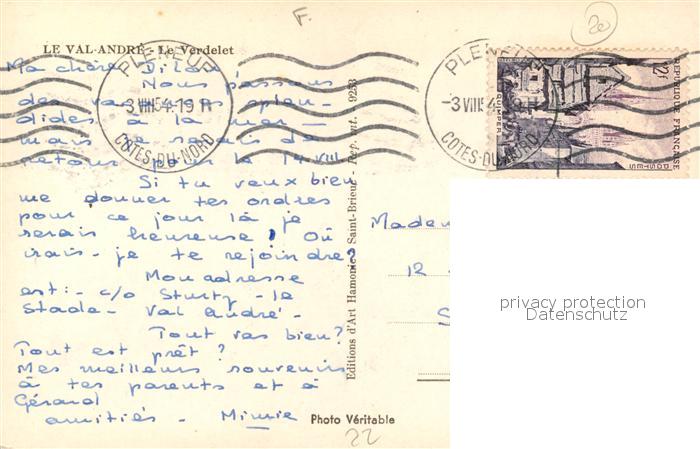 F.
20
LE VAL-ANDRÉ - Le Verdelet
Ma chère
Nous passons
des vacances splen-
dides à la mer -
mais je serais de
retour pour le 14 VIII.
Si tu veux bien
me donner tes ordres
pour ce jour là je
serais heureuse ! Où
irais-je te rejoindre?
Mon adresse
est: - c/o Sturty - le
Stade - Val André -
Tout vas bien?
Tout est prêt ?
Mes meilleurs souvenirs
à tes parents et à
Gérard
amitiés - Mimie
PLENEUF
3 VIII 54-19 H
COTES-DU-NORD
Editions d'Art Hamonic - Saint-Brieuc - Rep. int. 9253
PLENEUF
-3 VIII 54-19 H
COTES-DU-NORD
12F
REPUBLIQUE FRANÇAISE
POSTES
QUIMPER
Madem
12
S
privacy protection
Datenschutz
Photo Véritable
22